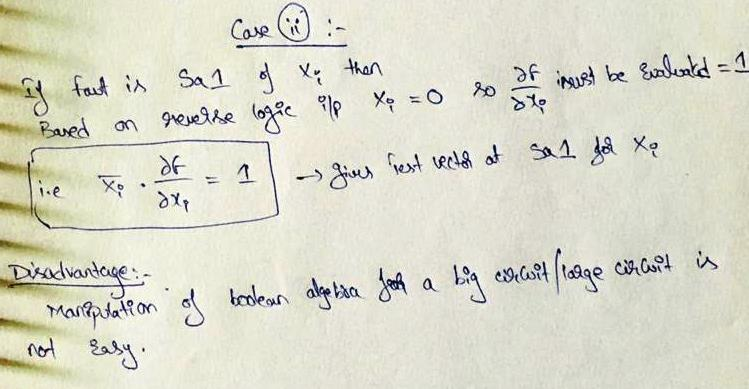 Case (ii) :-
If fault is Sa1 of Xi then
Based on reverse logic i/p Xi = 0 so ∂F/∂Xi must be Evaluated = 1
i.e X̅i . ∂F/∂Xi = 1 → gives Test vector at Sa1 for Xi
Disadvantage:-
Manipulation of boolean algebra for a big circuit/large circuit is
not Easy.